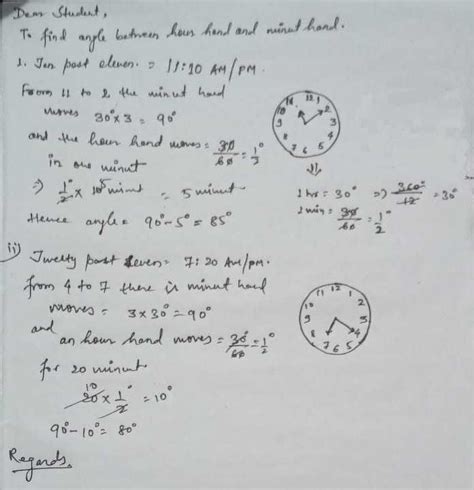 Dear Student,
To find angle between hour hand and minut hand.
1. Ten past eleven. = 11:10 AM/PM.
From 11 to 2 the minut hand
moves 30° x 3 = 90°
and the hour hand moves = 30/60 = 1°/2
in one minut
=> 1°/2 x 10 5 minut = 5 minut
Hence angle = 90° - 5° = 85°
12 1 2 3 4 5 6 7 8 9 10 11
1 hr = 30° => 360°/12 = 30°
1 min = 30/60 = 1°/2
ii) Twelty past seven = 7:20 AM/PM.
from 4 to 7 there is minut hand
moves = 3 x 30° = 90°
and
an hour hand moves = 30°/60 = 1°/2
for 20 minut
10
20 x 1°/2 = 10°
90° - 10° = 80°
12 1 2 3 4 5 6 7 8 9 10 11
Regards.